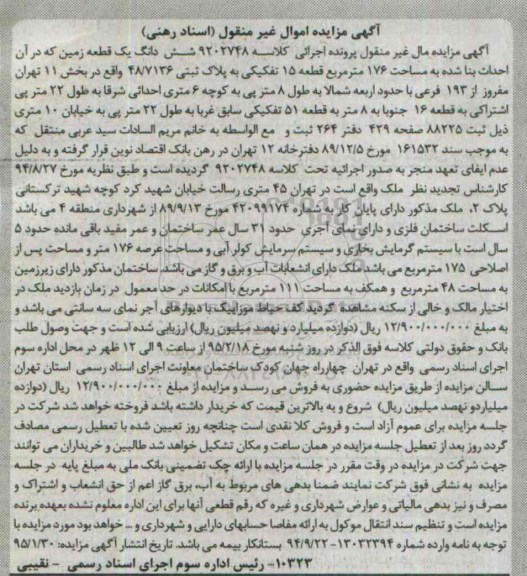 آگهی مزایده اموال غیر منقول (اسناد رهنی)
آگهی مزایده مال غیر منقول پرونده اجرائی کلاسه ۹۲۰۲۷۴۸ شش دانگ یک قطعه زمین که در آن
احداث بنا شده به مساحت ۱۷۶ مترمربع قطعه ۱۵ تفکیکی به پلاک ثبتی ۴۸/۷۱۳۶ واقع در بخش ۱۱ تهران
مفروز از ۱۹۳ فرعی با حدود اربعه شمالا به طول ۸ متر پی به کوچه ۶ متری احداثی شرقا به طول ۲۲ متر پی
اشتراکی به قطعه ۱۶ جنوبا به ۸ متر به قطعه ۵۱ تفکیکی سابق غربا به طول ۲۲ متر پی به خیابان ۱۰ متری
ذیل ثبت ۸۸۲۲۵ صفحه ۴۲۹ دفتر ۲۶۴ ثبت و مع الواسطه به خانم مریم السادات سید عربی منتقل که
به موجب سند ۱۶۱۵۳۲ مورخ ۸۹/۱۲/۵ دفترخانه ۱۲ تهران در رهن بانک اقتصاد نوین قرار گرفته و به دلیل
عدم ایفای تعهد منجر به صدور اجرائیه تحت کلاسه ۹۲۰۲۷۴۸ گردیده است و طبق نظریه مورخ ۹۴/۸/۲۷
کارشناس تجدید نظر ملک واقع است در تهران ۴۵ متری رسالت خیابان شهید کرد کوچه شهید ترکستانی
پلاک ۲، ملک مذکور دارای پایان کار شماره ۴۲۰۹۹۱۷۴ مورخ ۸۹/۹/۱۳ از شهرداری منطقه ۴ می باشد
اسکلت ساختمان فلزی و دارای نمای آجری حدود ۳۱ سال عمر ساختمان و عمر مفید باقی مانده حدود ۵
سال است با سیستم گرمایش بخاری و سیستم سرمایش کولر آبی و مساحت عرصه ۱۷۶ متر و مساحت پس از
اصلاحی ۱۷۵ مترمربع می باشد ملک دارای انشعابات آب و برق و گاز می باشد. ساختمان مذکور دارای زیرزمین
به مساحت ۴۸ مترمربع و همکف به مساحت ۱۱۱ مترمربع با امکانات در حد معمول در زمان بازدید ملک در
اختیار مالک و خالی از سکنه مشاهده گردید کف حیاط موزاییک با دیوارهای آجر نمای سه سانتی می باشد و
به مبلغ ۱۲/۹۰۰/۰۰۰/۰۰۰ ریال (دوازده میلیارد و نهصد میلیون ریال) ارزیابی شده است و جهت وصول طلب
بانک و حقوق دولتی کلاسه فوق الذکر در روز شنبه مورخ ۹۵/۲/۱۸ از ساعت ۹ الی ۱۲ ظهر در محل اداره سوم
اجرای اسناد رسمی واقع در تهران چهارراه جهان کودک ساختمان معاونت اجرای اسناد رسمی استان تهران
سالن مزایده از طریق مزایده حضوری به فروش می رسد و مزایده از مبلغ ۱۲/۹۰۰/۰۰۰/۰۰۰ ریال (دوازده
میلیاردو نهصد میلیون ریال) شروع و به بالاترین قیمت که خریدار داشته باشد فروخته خواهد شد شرکت در
جلسه مزایده برای عموم آزاد است و فروش کلا نقدی است چنانچه روز تعیین شده با تعطیل رسمی مصادف
گردد روز بعد از تعطیل جلسه مزایده در همان ساعت و مکان تشکیل خواهد شد طالبین و خریداران می توانند
جهت شرکت در مزایده در وقت مقرر در جلسه مزایده با ارائه چک تضمینی بانک ملی به مبلغ پایه در جلسه
مزایده به نشانی فوق شرکت نمایند ضمنا بدهی های مربوط به آب، برق گاز اعم از حق انشعاب و اشتراک و
مصرف و نیز بدهی مالیاتی و عوارض شهرداری و غیره که رقم قطعی آنها برای این اداره معلوم نشده بعهده برنده
مزایده است و تنظیم سند انتقال موکول به ارائه مفاصا حسابهای دارایی و شهرداری و ... خواهد بود مورد مزایده با
توجه به نامه وارده شماره ۱۳۰۳۲۳۹۴-۹۴/۹/۲۲ بستانکار بیمه می باشد. تاریخ انتشار آگهی مزایده: ۹۵/۱/۳۰
۱۰۳۲۳- رئیس اداره سوم اجرای اسناد رسمی - نقیبی